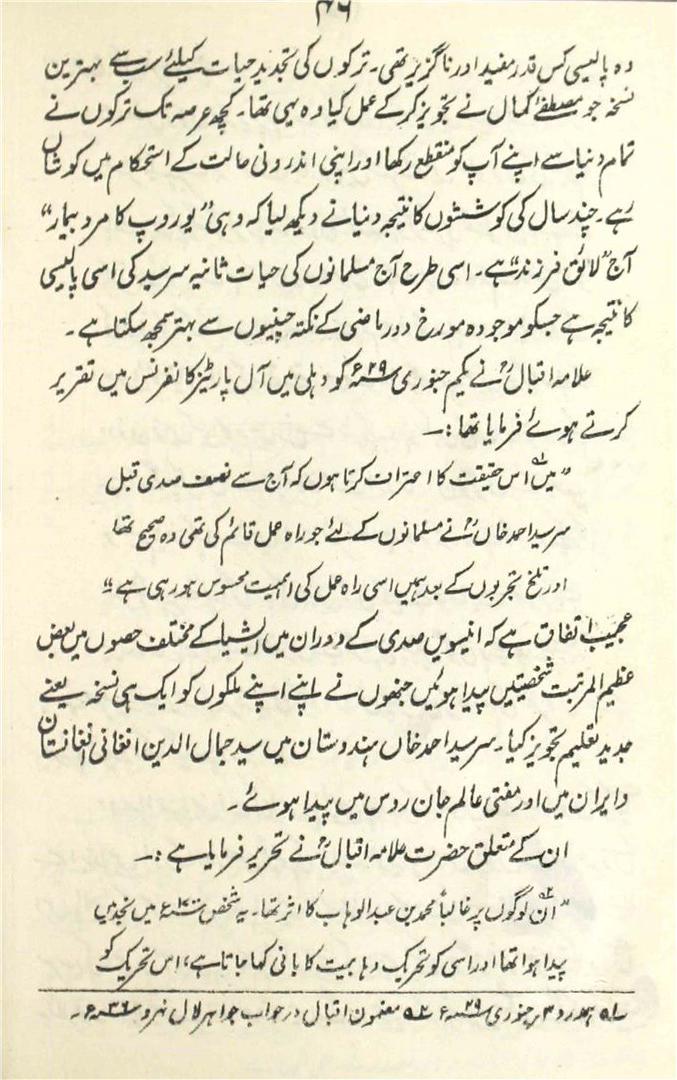 ۴۶
وہ پالیسی کس قدر مفید اور ناگزیر تھی۔ ترکوں کی تجدیدِ حیات کیلئے سب سے بہترین
نسخہ جو مصطفےٰ کمال نے تجویز کرکے عمل کیا وہ یہی تھا۔ کچھ عرصہ تک ترکوں نے
تمام دنیا سے اپنے آپ کو منقطع رکھا اور اپنی اندرونی حالت کے استحکام میں کوشاں
رہے۔ چند سال کی کوششوں کا نتیجہ دنیا نے دیکھ لیا کہ وہی "یوروپ کا مردِ بیمار"
آج "لائق فرزند" ہے۔ اسی طرح آج مسلمانوں کی حیات ثانیہ سرسید کی اسی پالیسی
کا نتیجہ ہے جسکو موجودہ مورخ دور ماضی کے نکتہ چینیوں سے بہتر سمجھ سکتا ہے۔
علامہ اقبالؒ نے یکم جنوری ۲۹ء؁ کو دہلی میں آل پارٹیز کانفرنس میں تقریر
کرتے ہوئے فرمایا تھا:۔
"میں۱؎ اس حقیقت کا اعتراف کرتا ہوں کہ آج سے نصف صدی قبل
سرسید احمد خاںؒ نے مسلمانوں کے لئے جو راہ عمل قائم کی تھی وہ صحیح تھا
اور تلخ تجربوں کے بعد ہمیں اسی راہ عمل کی اہمیت محسوس ہو رہی ہے"
عجیب اتفاق ہے کہ انیسویں صدی کے دوران میں ایشیا کے مختلف حصوں میں بعض
عظیم المرتبت شخصیتیں پیدا ہوئیں جنھوں نے اپنے اپنے ملکوں کو ایک ہی نسخہ یعنے
جدید تعلیم تجویز کیا۔ سرسید احمد خاں ہندوستان میں سید جمال الدین افغانی افغانستان
و ایران میں اور مفتی عالم جان روس میں پیدا ہوئے۔
ان کے متعلق حضرت علامہ اقبالؒ نے تحریر فرمایا ہے:۔
"ان۲؎ لوگوں پر غالباً محمد بن عبدالوہاب کا اثر تھا۔ یہ شخص ۱۷۰۰ء؁ میں نجد میں
پیدا ہوا تھا اور اسی کو تحریک وہابیت کا بانی کہا جاتا ہے، اس تحریک کو
۱؎ ہمدرد ۳؍ جنوری ۲۹ء؁ ۲؎ مضمون اقبال در جواب جواہر لال نہرو ۳۶ء؁۔